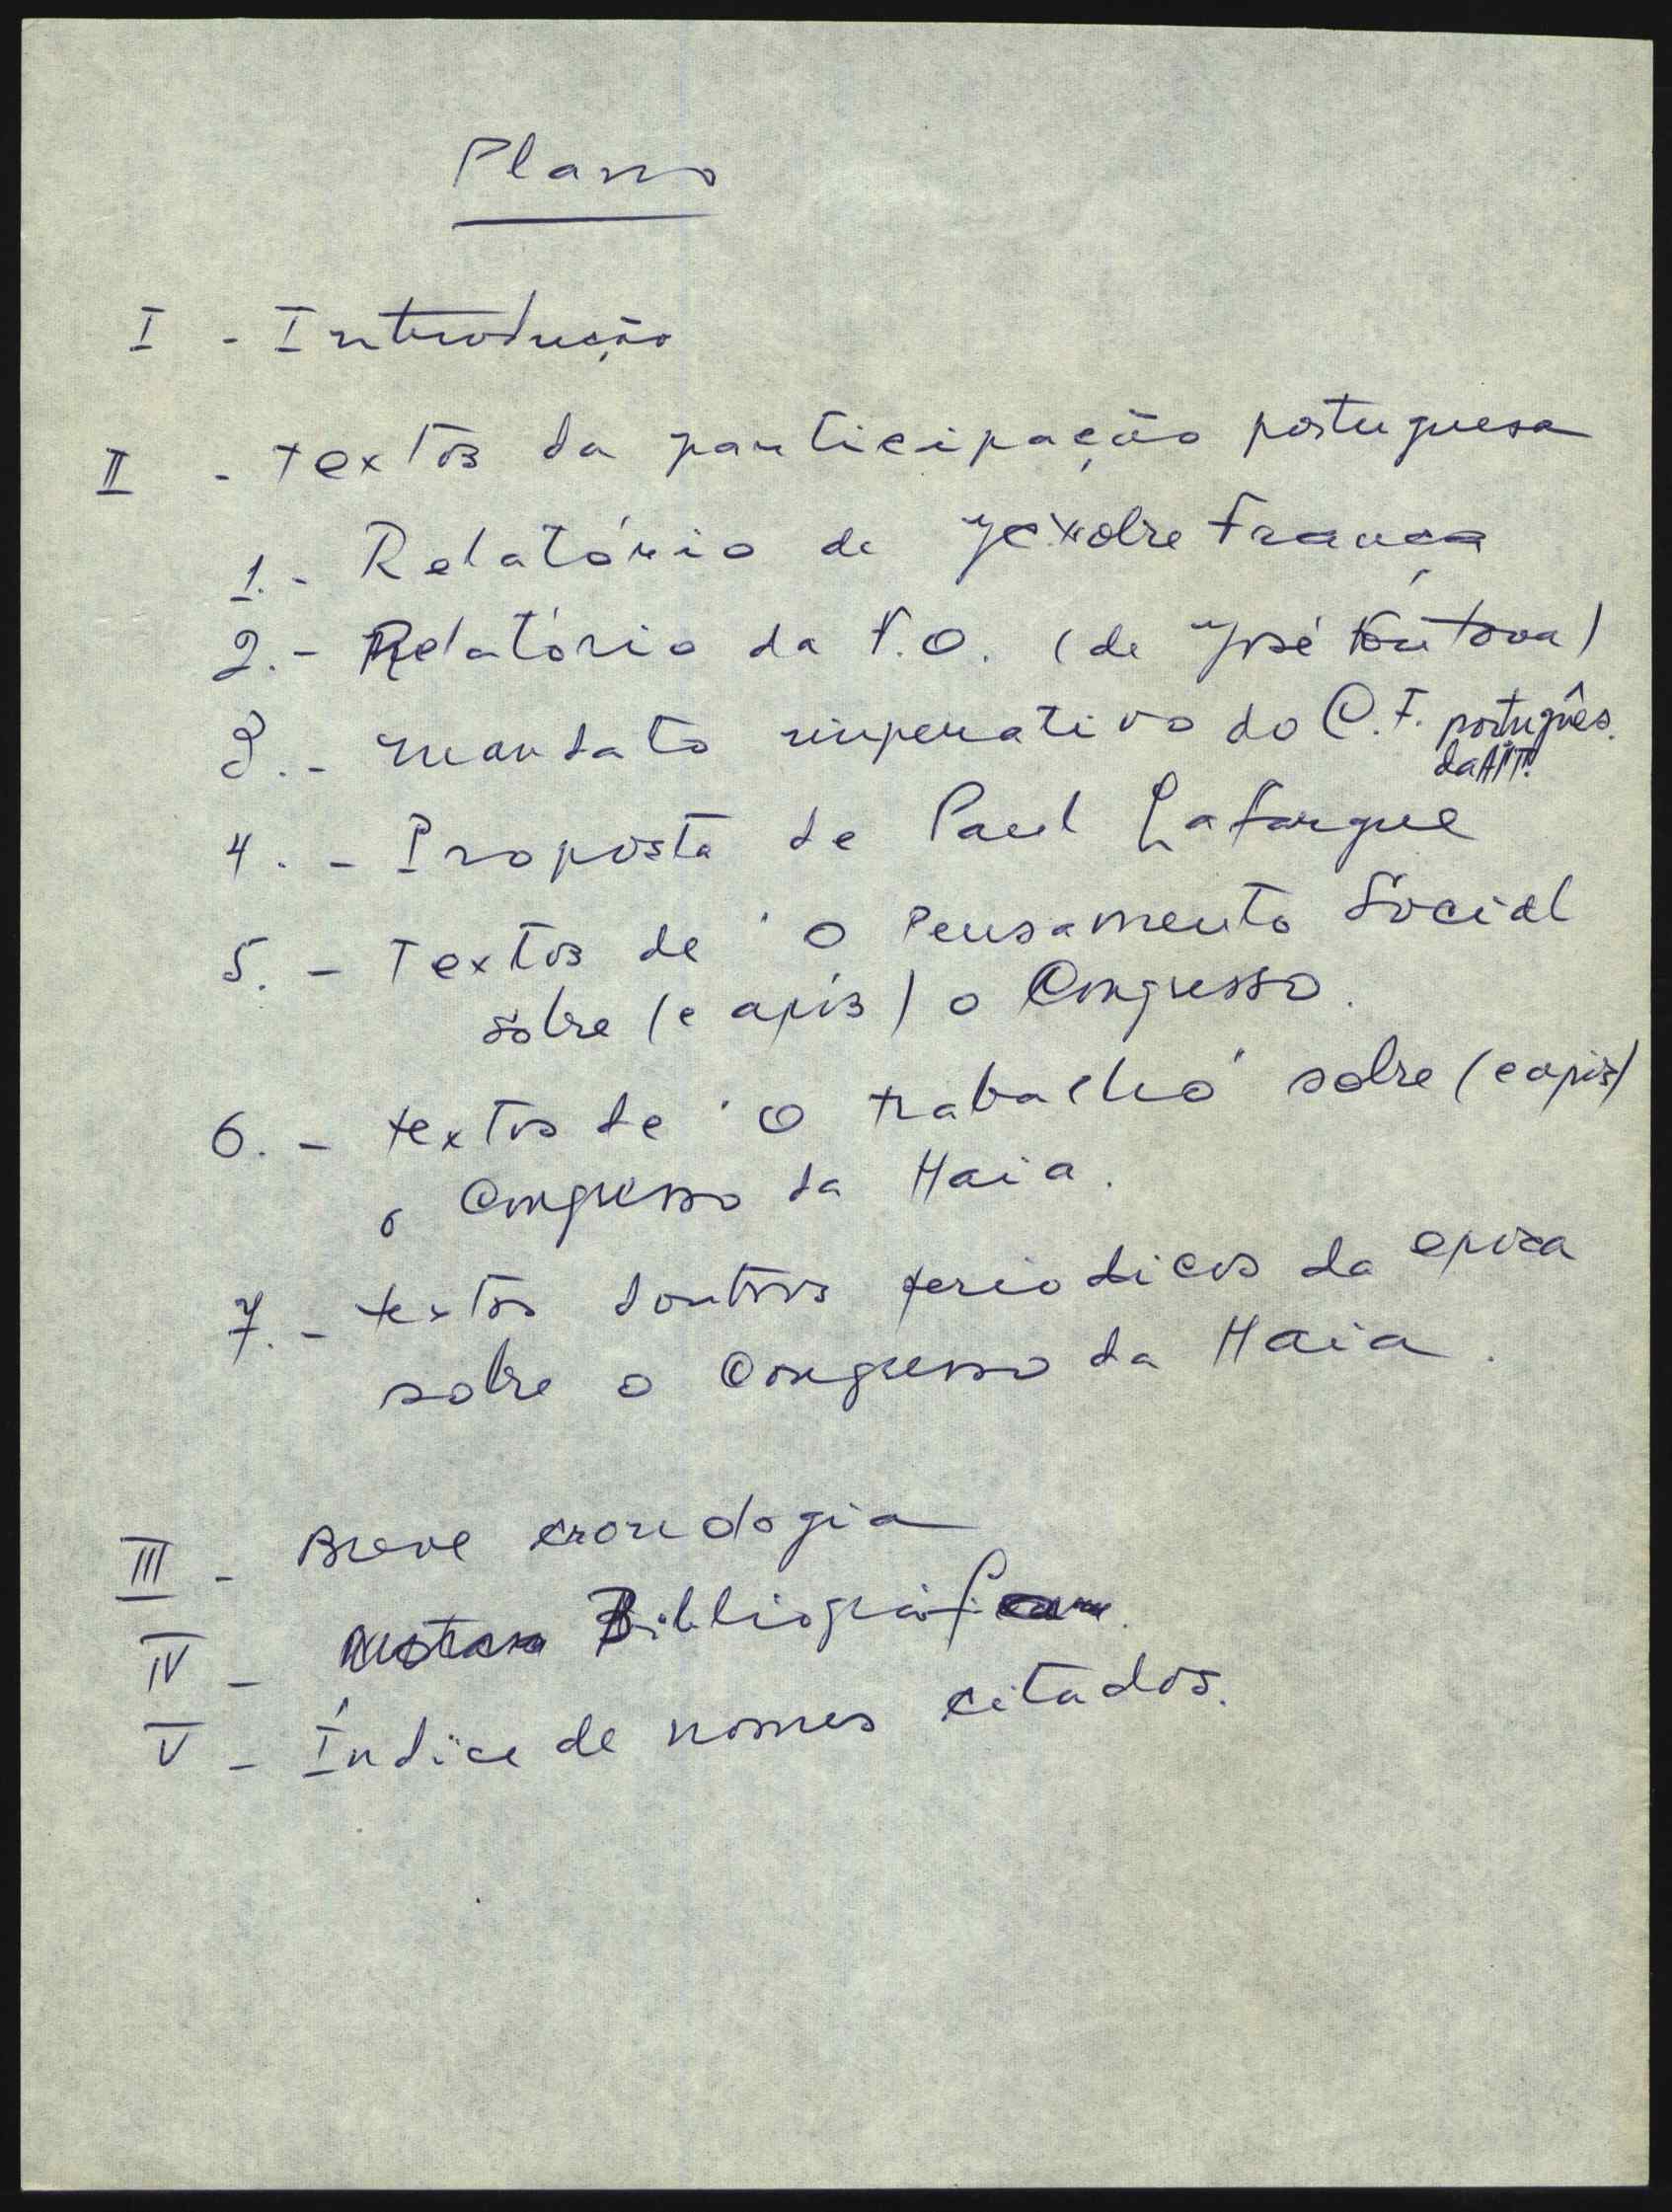 Plano
I - Introdução
II - textos da participação portuguesa
1. - Relatório de Nobre França
2. - Relatório da F.O. (de José Fontana)
3. - mandato imperativo do C.F. português.
da AIT.
4. - Proposta de Paul Lafargue
5. - Textos de "O Pensamento Social
sobre (e após) o Congresso.
6. - textos de "O trabalho" sobre (e após)
o Congresso da Haia.
7. - textos doutros periodicos da epoca
sobre o Congresso da Haia.
III - Breve cronologia
IV - Bibliografia
V - Índice de nomes citados.